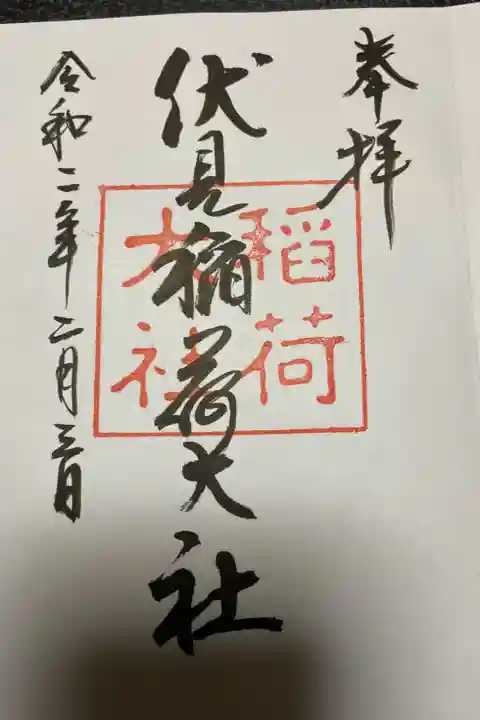 奉拝
伏見稲荷大社
稲荷
大社
令和二年二月三日